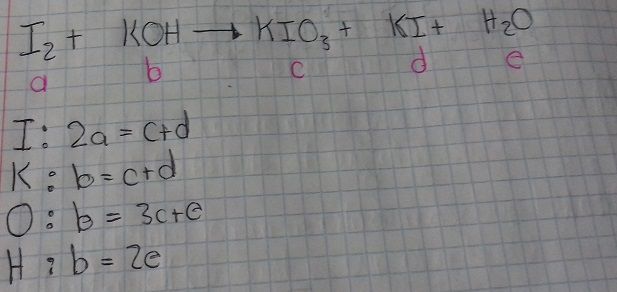 I₂ + KOH → KIO₃ + KI + H₂O
a b c d e
I: 2a = c+d
K: b = c+d
O: b = 3c+e
H: b = 2e